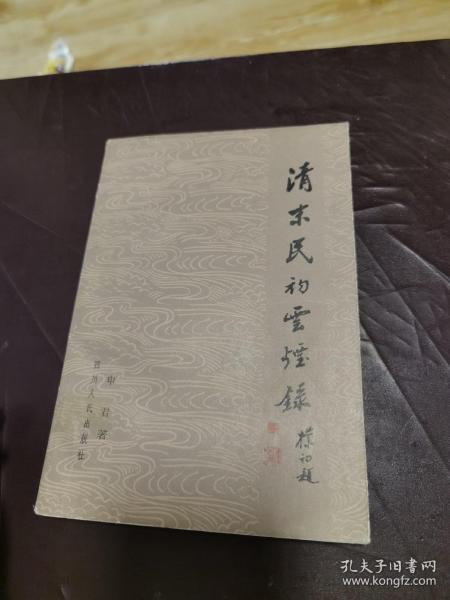 清末民初雲煙錄
樸初題
申君著
四川人民出版社
孔夫子旧书网
www.kongfz.com